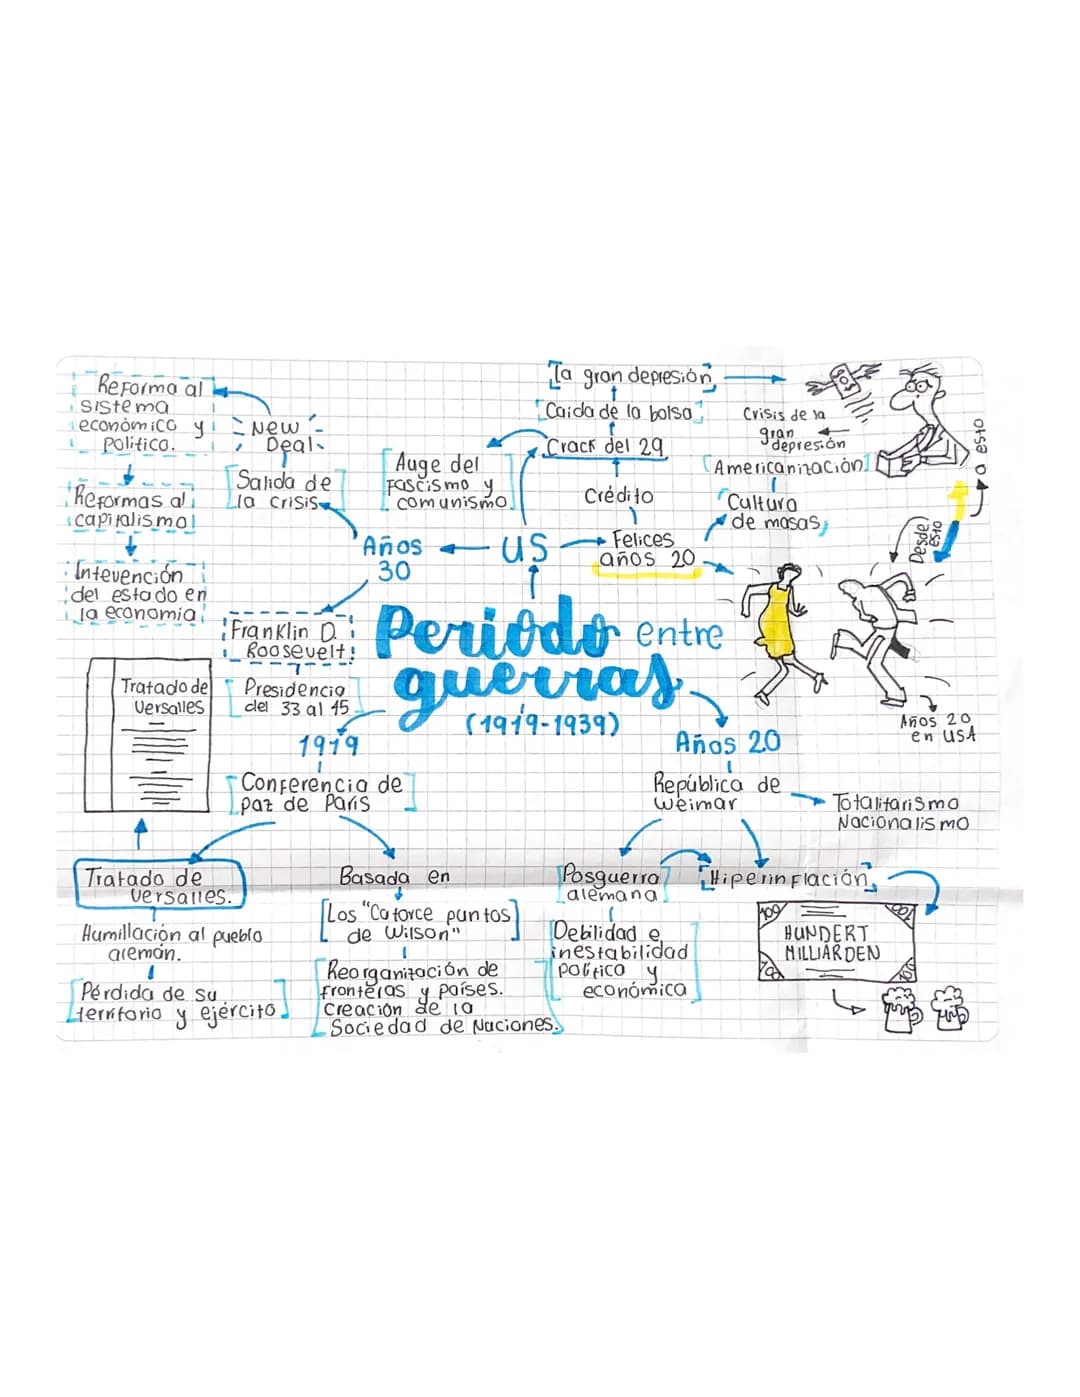 Reforma al
sistema
económico y
político.
New
Deal
Reformas al
capitalismo
Intevención
del estado en
la economía
Salida de
la crisis
Auge del
Fascismo y
comunismo
La gran depresión
Caida de la bolsa
Crack del 29
Crédito
Felices
años 20
Crisis de la
gran
depresión
Americanización
Cultura
de masas
Desde
esto
a esto
Años
30
US
Franklin D.
Roosevelt
Presidencia
del 33 al 45
Periodo entre
guerras
(1919-1939)
Tratado de
Versalles
Años 20
en USA
1919
Conferencia de
paz de París
Años 20
República de
Weimar
Totalitarismo
Nacionalismo
Tratado de
Versalles.
Humillación al pueblo
alemán.
Pérdida de su
territorio y ejército
Basada en
Los "Catorce puntos
de Wilson"
Reorganización de
fronteras y países.
Creación de la
Sociedad de Naciones.
Posguerra
alemana
Debilidad e
inestabilidad
política y
económica
Hiperinflación
100
HUNDERT
MILLIARDEN